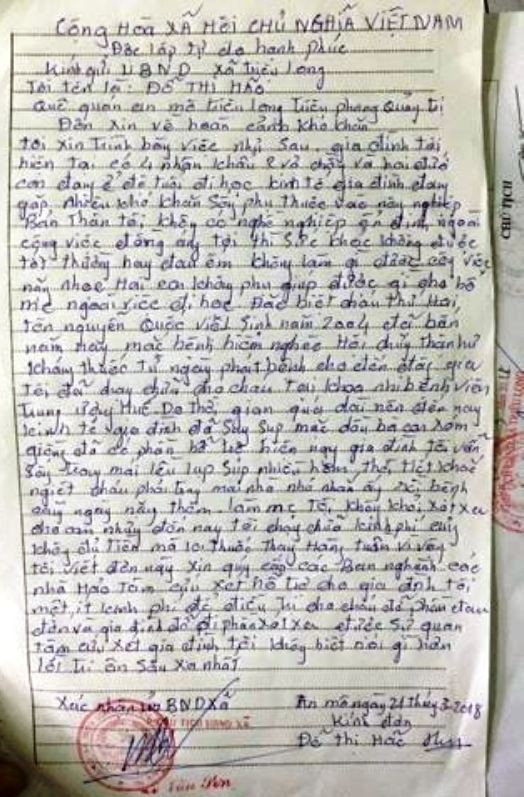 Cộng Hòa XÃ Hội CHỦ NGHĨA VIỆT NAM
Độc lập tự do hạnh phúc
Kính gửi UBND xã triệu long
Tôi tên là: ĐỖ THỊ HÁO
Quê quán an mô triệu long triệu phong Quảng trị
Đơn xin về hoàn cảnh khó khăn
tôi xin trình bày việc như sau. gia đình tôi
hiện tại có 4 nhân khẩu 2 vợ chồng và hai đứa
con đang ở độ tuổi đi học kinh tế gia đình đang
gặp nhiều khó khăn sống phụ thuộc vào nông nghiệp
Bản Thân tôi không có nghề nghiệp ổn định ngoài
công việc đồng áng tôi thì sức khỏe không được
tốt thường hay đau ốm không làm gì được công việc
nặng nhọc Hai con không phụ giúp được gì cho bố
mẹ ngoài việc đi học. Đặc biệt cháu thứ Hai
tên nguyễn Quốc việt sinh năm 2004
năm nay mắc bệnh hiểm nghèo Hội chứng thận hư
kháng thuốc từ ngày phát bệnh cho đến
Tôi đã chạy chữa cho cháu tại khoa nhi bệnh viện
trung ương Huế. Do thời gian quá dài nên đến nay
kinh tế gia đình đã sa sút mặc dầu bà con xóm
giềng đã có phần hỗ trợ hiện nay gia đình tôi vẫn
mái lều lụp sụp thời tiết khắc
nghiệt cháu phải
càng ngày nặng thêm. làm mẹ tôi không khỏi xót xa
cho con nhưng đến nay tôi chạy chữa kinh phí cũng
không đủ tiền mà lo thuốc thang Hàng tuần vì vậy
tôi viết đơn này xin quý cấp các Ban nghành các
nhà Hảo tâm cứu xét hỗ trợ cho gia đình tôi
một ít kinh phí để điều trị cho cháu đỡ phần đau
đớn và gia đình đỡ đi phần xót xa được sự quan
tâm cứu xét gia đình tôi không biết nói gì hơn
lời tri ân sâu xa nhất
Xác nhận của UBND Xã
An mô ngày 21 tháng 3-2018
Kính đơn
Đỗ Thị Háo
CHỦ TỊCH